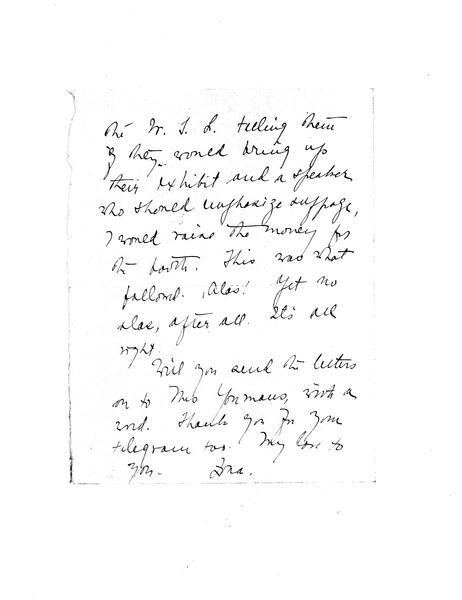 the W. T. L. telling them
if they would bring up
their exhibit and a speaker
who should emphasize suffrage,
I would raise the money for
the booth. This was what
followed. Alas! Yet no
alas, after all. It's all
right.
Will you send the letters
on to Mrs Youmans, with a
word. Thank you for your
telegram too. My love to
you. Zona.